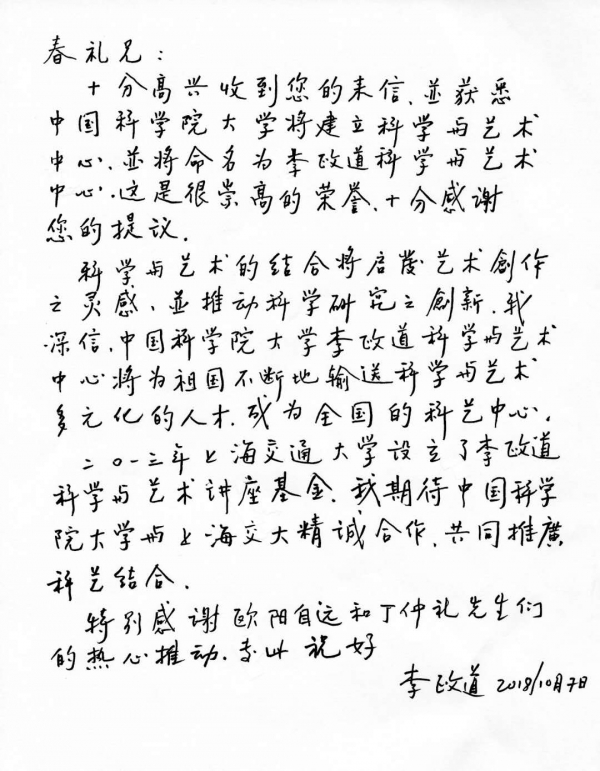 春礼兄：
十分高兴收到您的来信，並获悉
中国科学院大学将建立科学与艺术
中心，並将命名为李政道科学与艺术
中心，这是很崇高的荣誉，十分感谢
您的提议．
科学与艺术的结合将启發艺术創作
之灵感，並推动科学研究之創新．我
深信，中国科学院大学李政道科学与艺术
中心将为祖国不断地输送科学与艺术
多元化的人才，成为全国的科艺中心．
二〇一三年上海交通大学设立了李政道
科学与艺术讲座基金．我期待中国科学
院大学与上海交大精诚合作，共同推廣
科艺结合．
特别感谢欧阳自远和丁仲礼先生们
的热心推动．专此 祝好
李政道 2018/10月7日